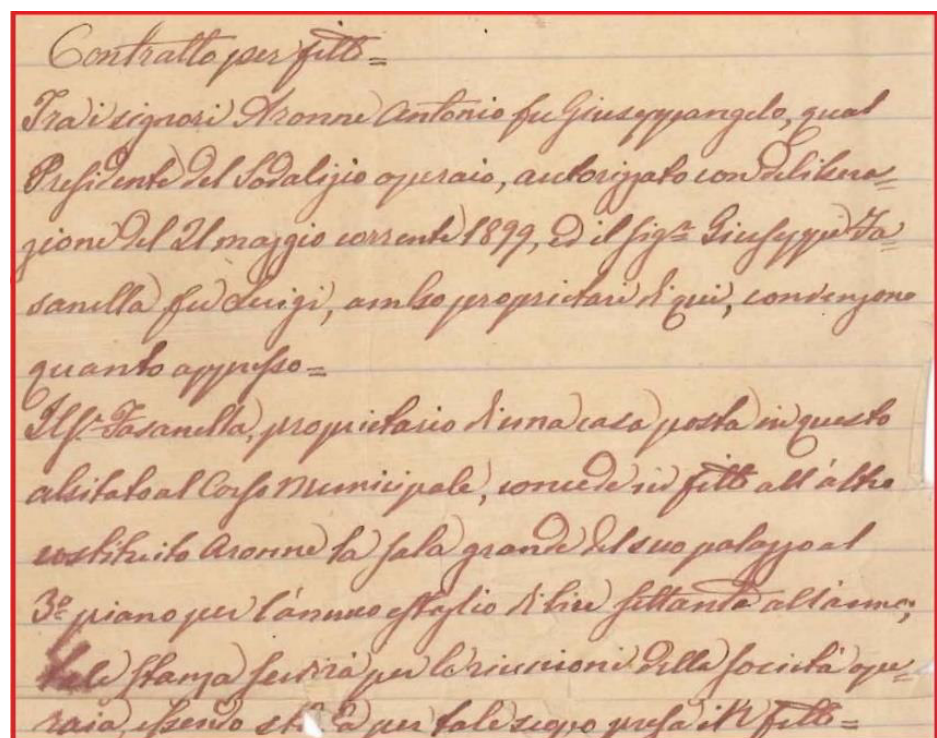 Contratto per fitto=
Tra i signori Aronne Antonio fu Giuseppangelo, qual
Presidente del Sodalizio operaio, autorizzato con delibera=
zione del 21 maggio corrente 1899, ed il sigr. Giuseppe Fa
sanella fu Luigi, ambo proprietari di qui, convengono
quanto appresso=
Il Sr. Fasanella, proprietario di una casa posta in questo
abitato al Corso Municipale, concede in fitto all'altro
costituito Aronne la sala grande del suo palazzo al
3º piano per l'annuo estaglio di lire settanta all'anno;
tale stanza servirà per le riunioni della società ope=
raia, essendo per tale scopo presa in fitto=